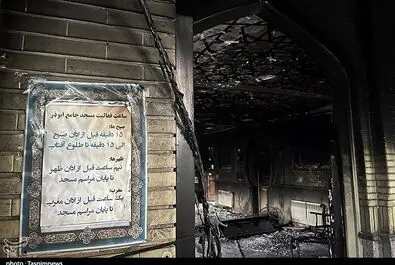 ساعت فعالیت مسجد جامع ابوذر
صبح ها:
۱۵ دقیقه قبل از اذان صبح
الی ۱۵ دقیقه تا طلوع آفتاب
ظهرها:
نیم ساعت قبل از اذان ظهر
تا پایان مراسم مسجد
مغرب:
یک ساعت قبل از اذان مغرب
تا پایان مراسم مسجد
photo: Tasnimnews